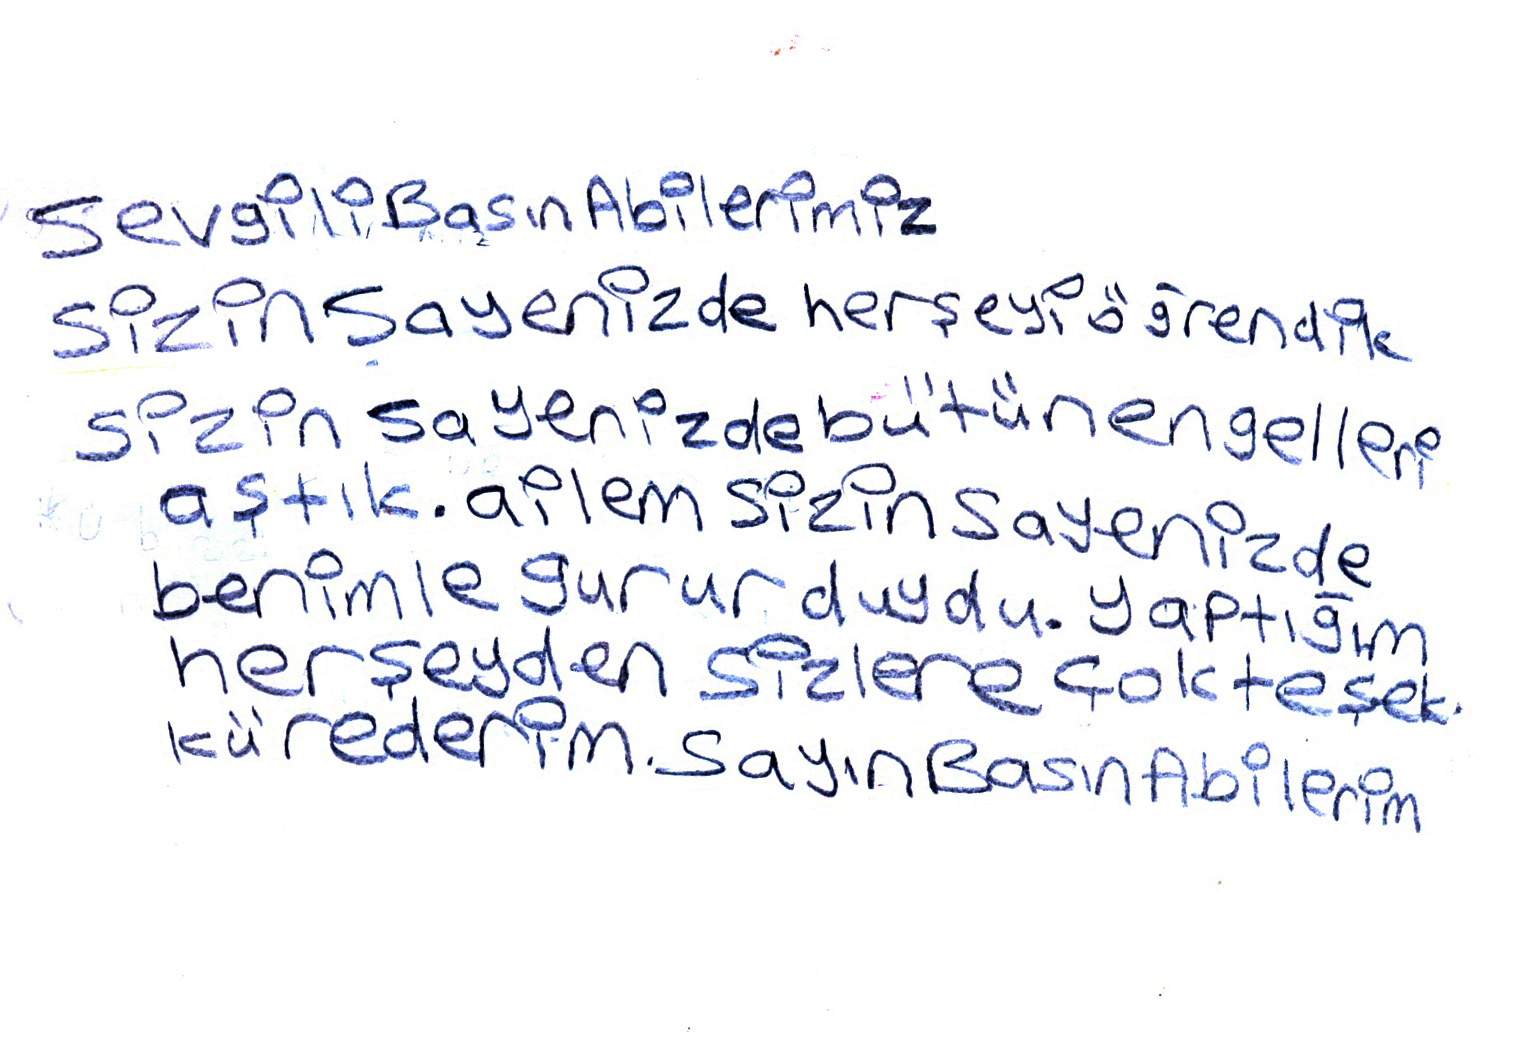 Sevgili Basın Abilerimiz
Sizin Sayenizde herşeyi öğrendik
Sizin sayenizde bütün engelleri
aştık. ailem Sizin Sayenizde
benimle gurur duydu. yaptığım
herşeyden Sizlere çok teşek.
kürederim. Sayın Basın Abilerim